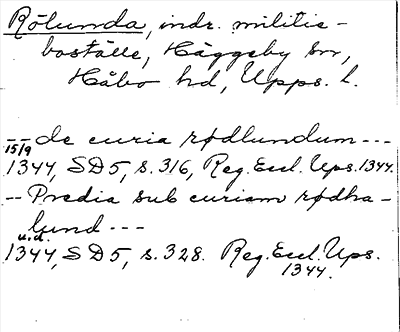 Rölunda, indr. militie-
boställe, Häggeby sn,
Håbo hd, Upps. l.
-- de curia rødlundum ---
15/9
1344, SD5, s. 316, Reg. Eccl. Ups. 1344.
-- Predia sub curiam rødha-
lund ---
u.d.
1344, SD5, s. 328. Reg. Eccl. Ups.
1344.